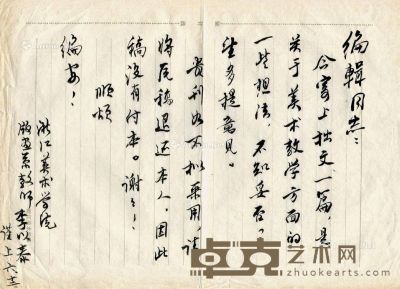 编辑同志：
今寄上拙文一篇，是
关于美术教学方面的
一些想法，不知妥否？
望多提意见。
贵刊如不拟采用，请
将底稿退还本人，因此
稿没有付本。谢谢！
顺颂
编安！
浙江美术学院
版画系教师 李以泰
谨上 六.三
卓克艺术网
www.zhuokearts.com